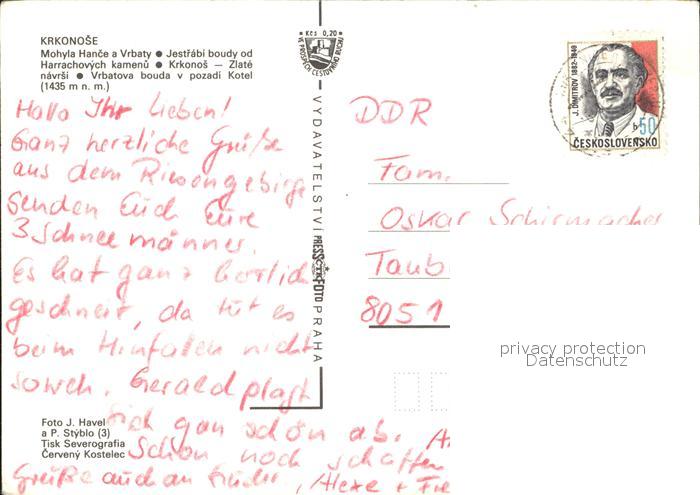 KRKONOŠE
Mohyla Hanče a Vrbaty ● Jestřábi boudy od
Harrachových kamenů ● Krkonoš — Zlaté
návrší ● Vrbatova bouda v pozadí Kotel
(1435 m n. m.)
Kčs 0,20
VE PROSPĚCH CESTOVNÍHO RUCHU
J. DIMITROV 1882-1949
50
ČESKOSLOVENSKO
Hallo Ihr Lieben!
Ganz herzliche Grüße
aus dem Riesengebirge
senden Euch Eure
3 Schneemänner.
Es hat ganz herrlich
geschneit, da tut es
beim Hinfallen nicht
so weh. Gerald plagt
sich ganz schön ab.
schon noch schaffen
Grüße auch an
Alexe + Fre
VYDAVATELSTVÍ PRESSFOTO PRAHA
DDR
Fam.
Oskar Schirmacher
Taub
8051
privacy protection
Datenschutz
Foto J. Havel
a P. Stýblo (3)
Tisk Severografia
Červený Kostelec